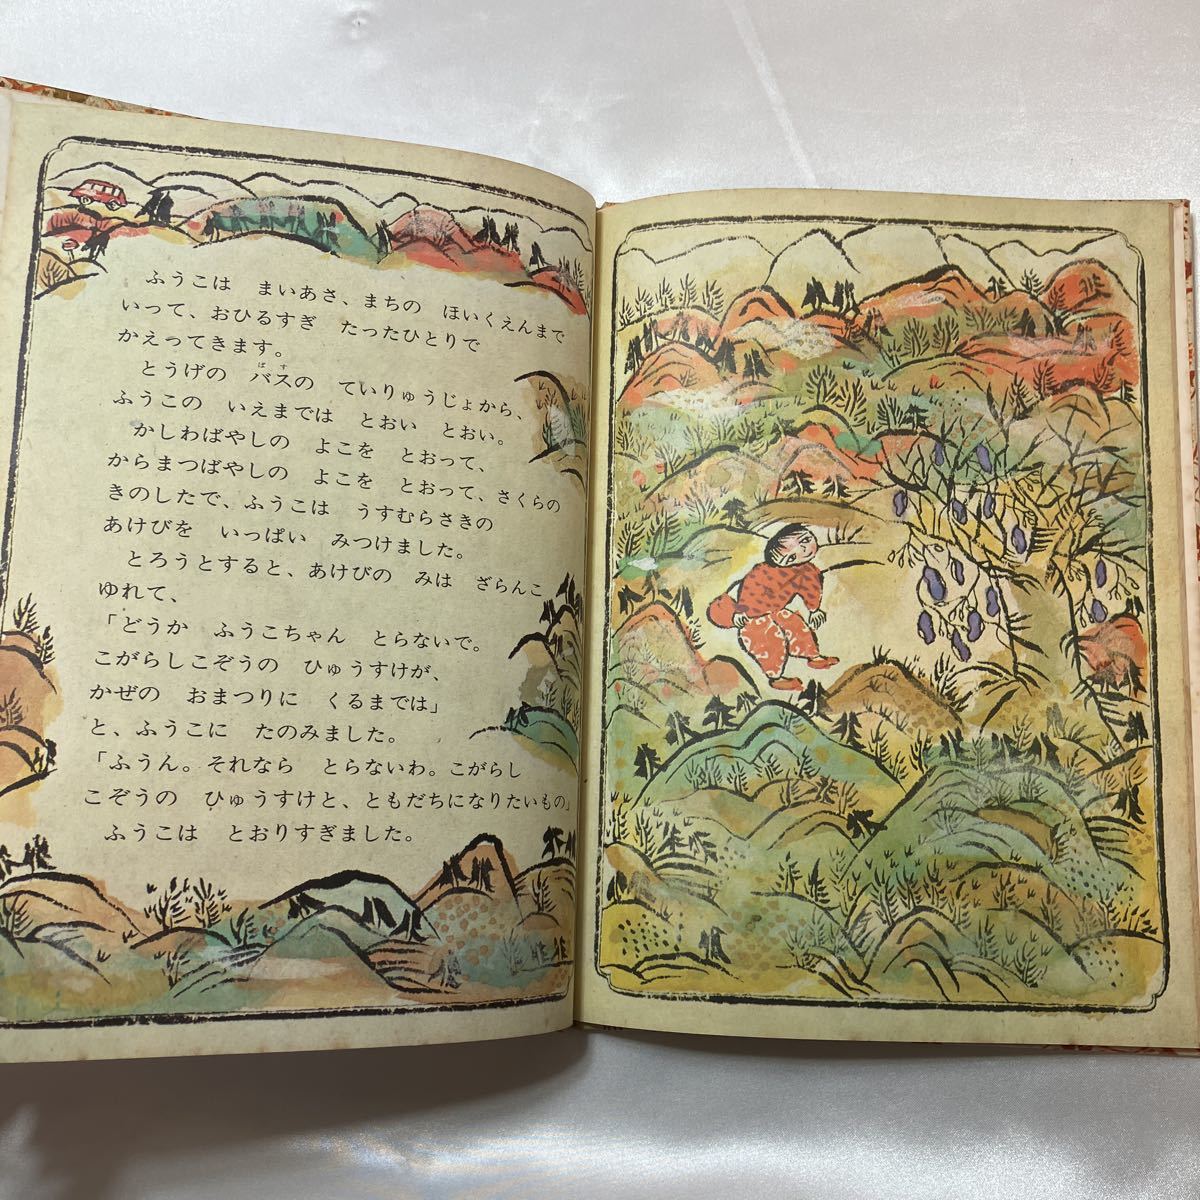 ふうこは　まいあさ、まちの　ほいくえんまで
いって、おひるすぎ　たったひとりで
かえってきます。
とうげの　バスの　ていりゅうじょから、
ばす
ふうこの　いえまでは　とおい　とおい。
かしわばやしの　よこを　とおって、
からまつばやしの　よこを　とおって、さくらの
きのしたで、ふうこは　うすむらさきの
あけびを　いっぱい　みつけました。
とろうとすると、あけびの　みは　ざらんこ
ゆれて、
「どうか　ふうこちゃん　とらないで。
こがらしこぞうの　ひゅうすけが、
かぜの　おまつりに　くるまでは」
と、ふうこに　たのみました。
「ふうん。それなら　とらないわ。こがらし
こぞうの　ひゅうすけと、ともだちになりたいもの」
ふうこは　とおりすぎました。